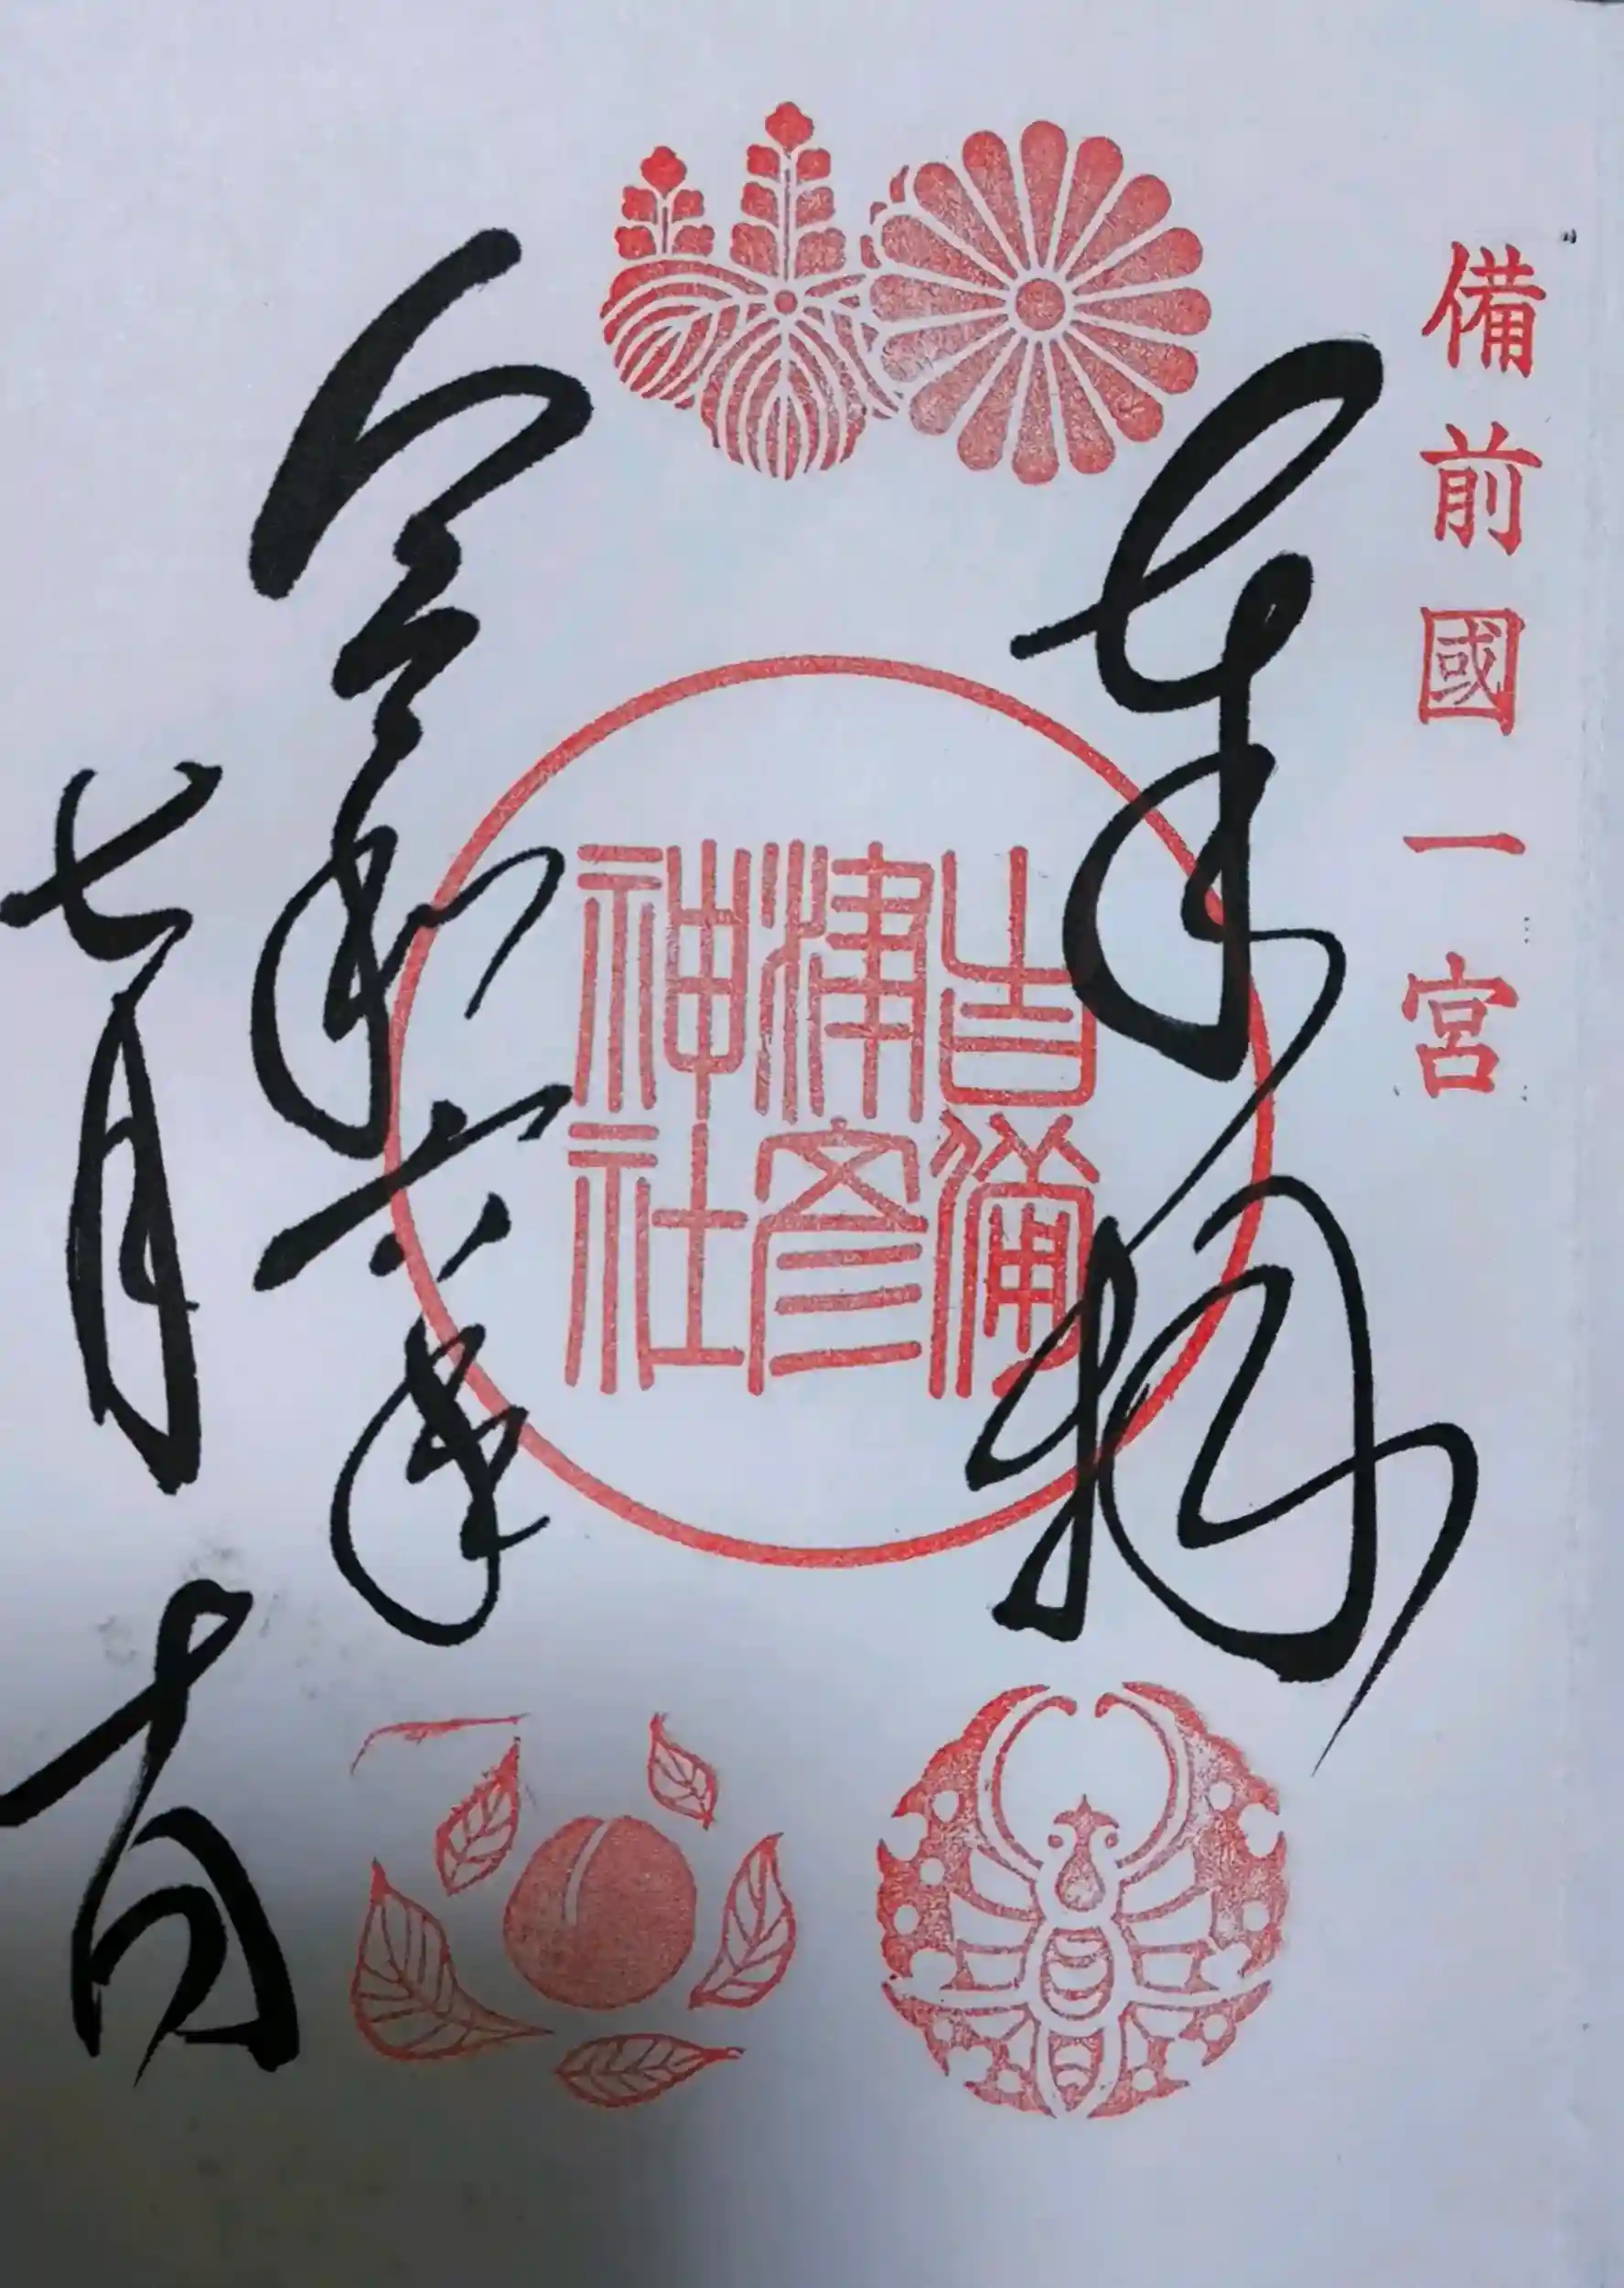 備前國一宮
奉拝
吉備
津彦
神社
令和六年
七月日